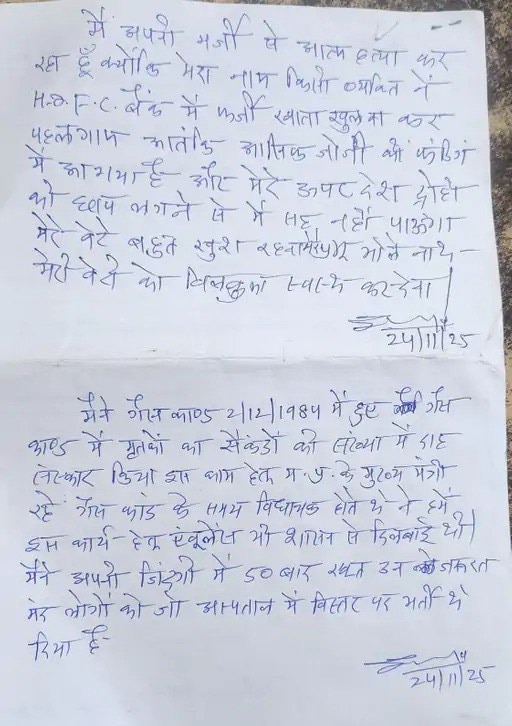 मैं अपनी मर्जी से आत्म हत्या कर
रहा हूँ क्योंकि मेरा नाम किसी व्यक्ति ने
H.D.F.C. बैंक में फर्जी खाता खुलवा कर
पहलगाम आतंकि आसिफ जो की फंडिंग
में आ गया है और मेरे ऊपर देश द्रोही
की छाप लगने से में सह नहीं पाऊंगा
मेरे बेटे बहुत खुश रहना प्रभू भोले नाथ
मेरी बेटी को बिलकुल स्वस्थ कर देना
24/11/25
मैंने गैस काण्ड 2/12/1984 में हुए गैस
काण्ड में मृतकों का सैकडों की संख्या में दाह
संस्कार किया इस काम हेतू म.प्र. के मुख्य मंत्री
रहे गैस कांड के समय विधायक होते थे ने हमें
इस कार्य हेतू एंबूलेंस भी शासन से दिलबाई थी
मैंने अपनी जिंदगी में 50 बार रक्त उन जरूरत
मंद लोगों को जो अस्पताल में बिस्तर पर भर्ती थे
दिया है-
24/11/25